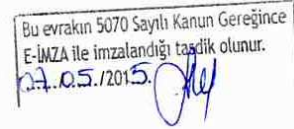 Bu evrakın 5070 Sayılı Kanun Gereğince
E-İMZA ile imzalandığı tasdik olunur.
07.05./2015.